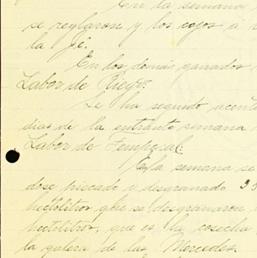 En la semana
se reglaron y los cojos á
la fe.
En los demás ganados
Labor de Riego:
Se ha seguido
dias de la entrante semana
Labor de Temporal:
Esta semana se
dose pizcado y desgranado 33
hectolitros que se desgranaron
hectolitros, que es la cosecha
la galera de las Mercedes